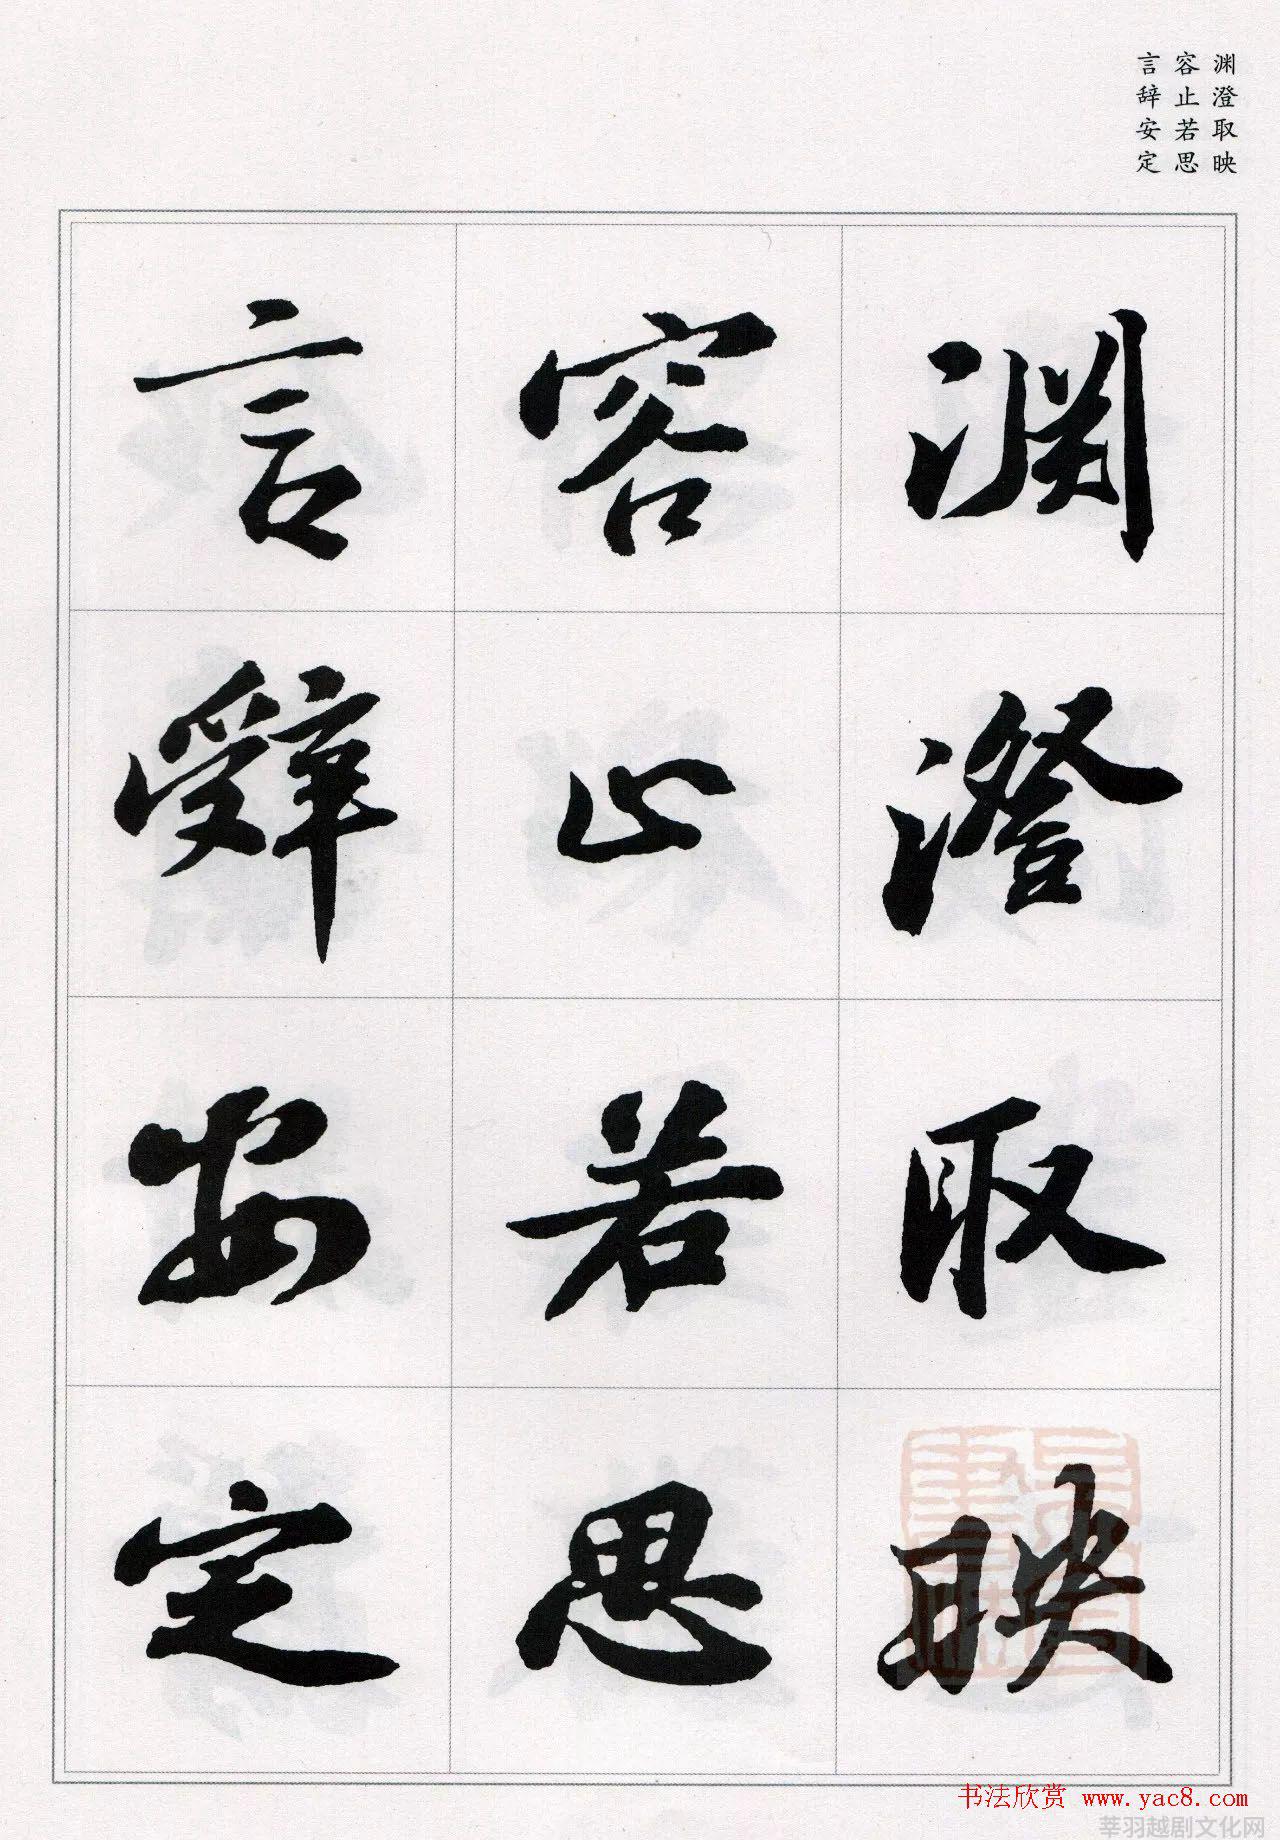 渊澄取映
容止若思
言辞安定
渊澄取映
容止若思
言辭安定
书法欣赏 www.yac8.com
莘羽越剧文化网